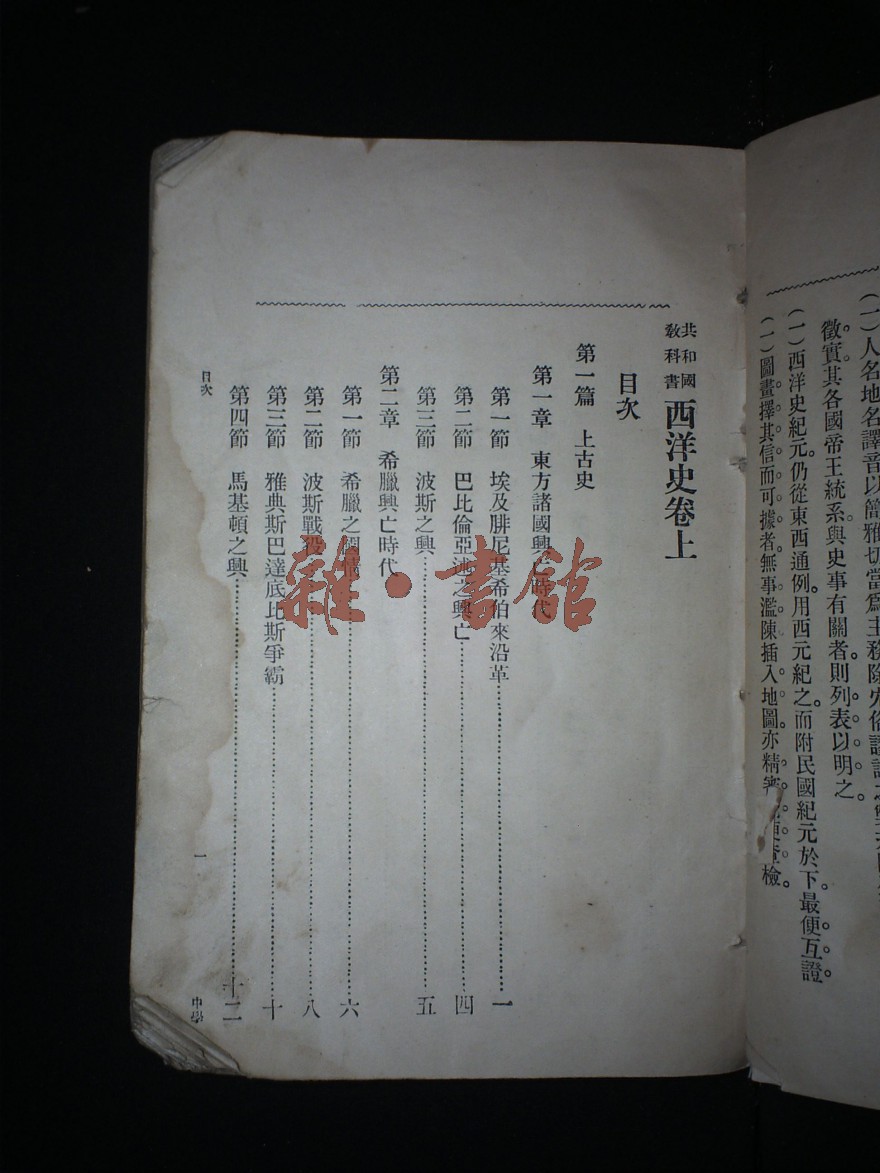 (一)人名地名譯音以簡雅切當爲主務除
徵實其各國帝王統系與史事有關者則列表以明之。
(一)西洋史紀元仍從東西通例用西元紀之而附民國紀元於下最便互證
(一)圖畫擇其信而可據者無事濫陳插入地圖亦精
檢。
共和國教科書 西洋史卷上
目次
第一篇 上古史
第一章 東方諸國興亡時代
第一節 埃及腓尼基希伯來沿革 一
第二節 巴比倫亞述之興亡 四
第三節 波斯之興 五
第二章 希臘興亡時代
第一節 希臘之 六
第二節 波斯戰役 八
第三節 雅典斯巴達底比斯爭霸 十
第四節 馬基頓之興 十二
目次
一
中學
雜·書館